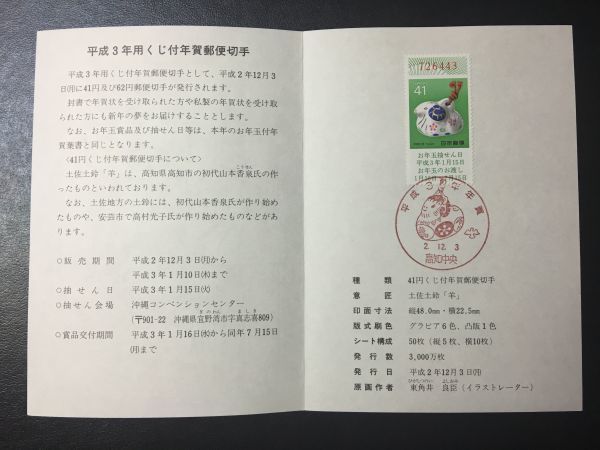 平成3年用くじ付年賀郵便切手
平成3年用くじ付年賀郵便切手として、平成2年12月3
日㈪に41円及び62円郵便切手が発行されます。
封書で年賀状を受け取られた方や私製の年賀状を受け取
られた方にも新年の夢をお届けすることとします。
なお、お年玉賞品及び抽せん日等は、本年のお年玉付年
賀葉書と同じとなります。
〈41円くじ付年賀郵便切手について〉
土佐土鈴「羊」は、高知県高知市の初代山本香泉氏の作
ったものといわれております。
なお、土佐地方の土鈴には、初代山本香泉氏が作り始め
たものや、安芸市で高村光子氏が作り始めたものなどがあ
ります。
○販売期間 平成2年12月3日㈪から
平成3年1月10日㈭まで
○抽せん日 平成3年1月15日㈫
○抽せん会場 沖縄コンベンションセンター
(〒901-22 沖縄県宜野湾市字真志喜809)
○賞品交付期間 平成3年1月16日㈬から同年7月15日
㈪まで
726443
41
日本郵便
お年玉抽せん日
平成3年1月15日
お年玉のお渡し
平成3年年賀
2.12.3
高知中央
種類 41円くじ付年賀郵便切手
意匠 土佐土鈴「羊」
印面寸法 縦48.0mm・横22.5mm
版式刷色 グラビア6色、凸版1色
シート構成 50枚(縦5枚、横10枚)
発行数 3,000万枚
発行日 平成2年12月3日㈪
原画作者 東角井 良臣(イラストレーター)